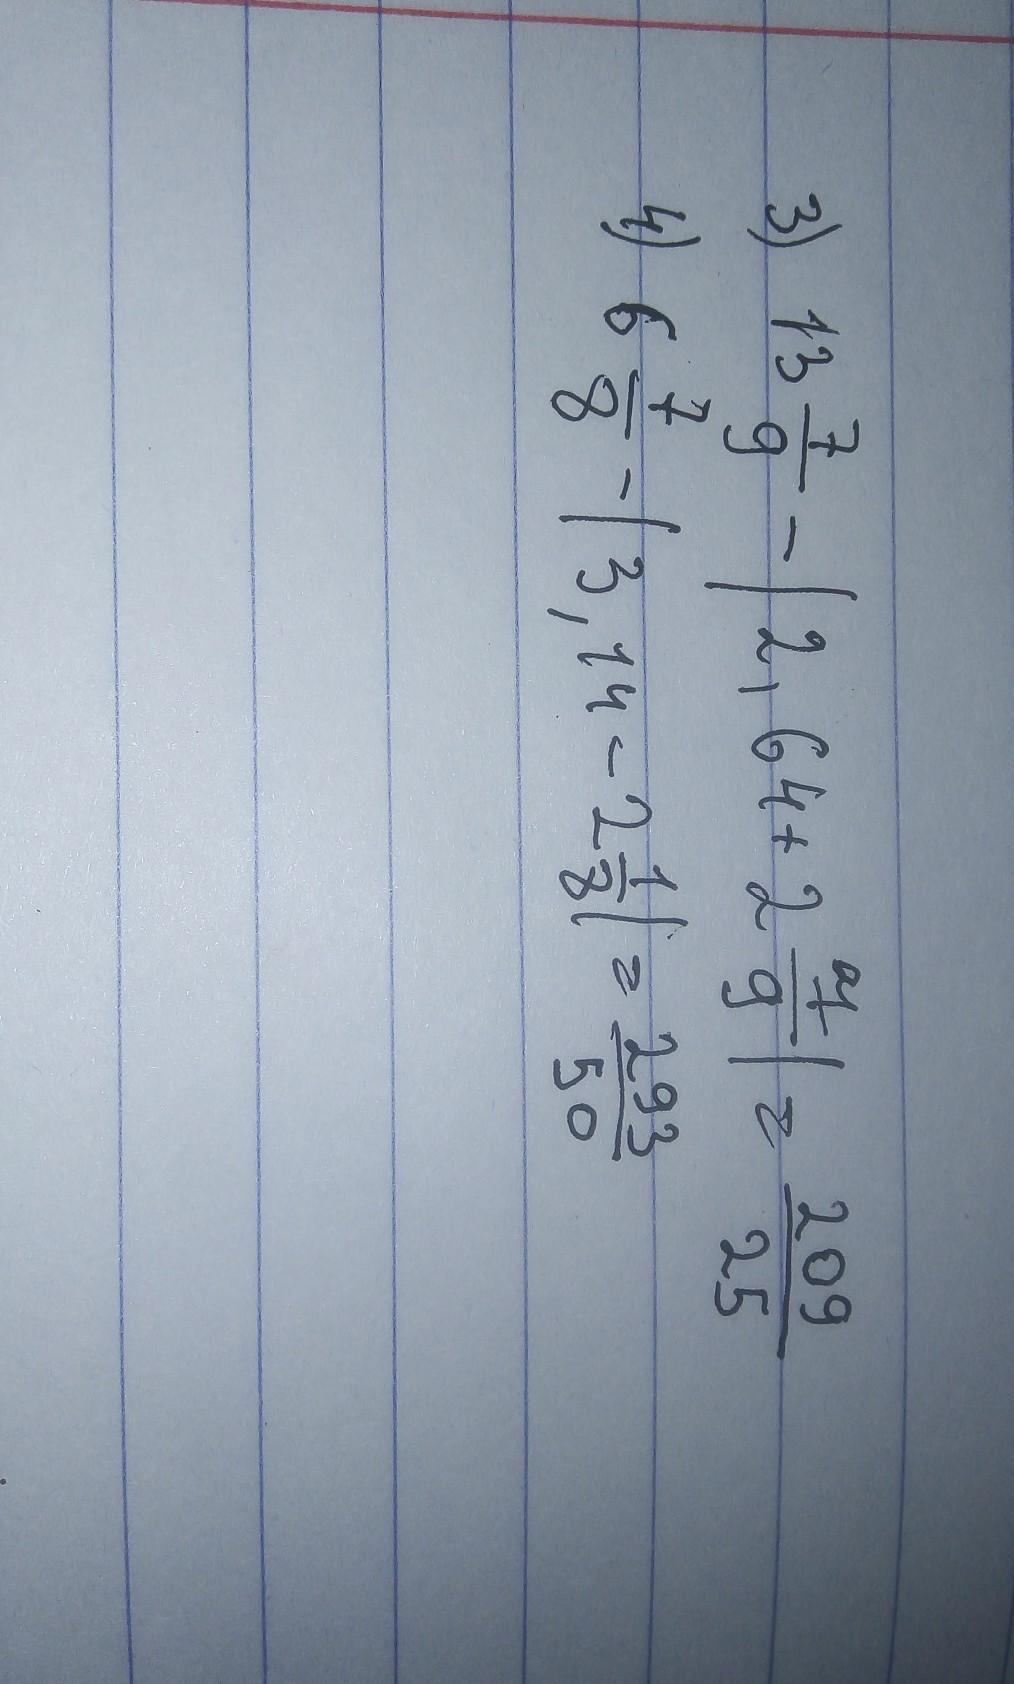 3) 13 7/9 - | 2,64 + 2 7/9 | = 209/25
4) 6 7/8 - | 3,14 - 2 1/8 | = 293/50